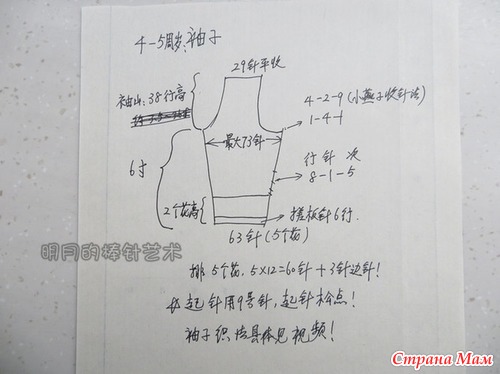 4-5周岁:袖子
29针平收
袖山:38行高
4-2-9(小燕子收针法)
1-4-1
最大73针
6寸
行 针 次
8-1-5
2个花高
搓板针6行.
63针(5个花)
明月的棒针艺术
排5个花,5×12=60针+3针边针!
起针用9号针,起针松点!
袖子织法具体见视频!
Страна Мам